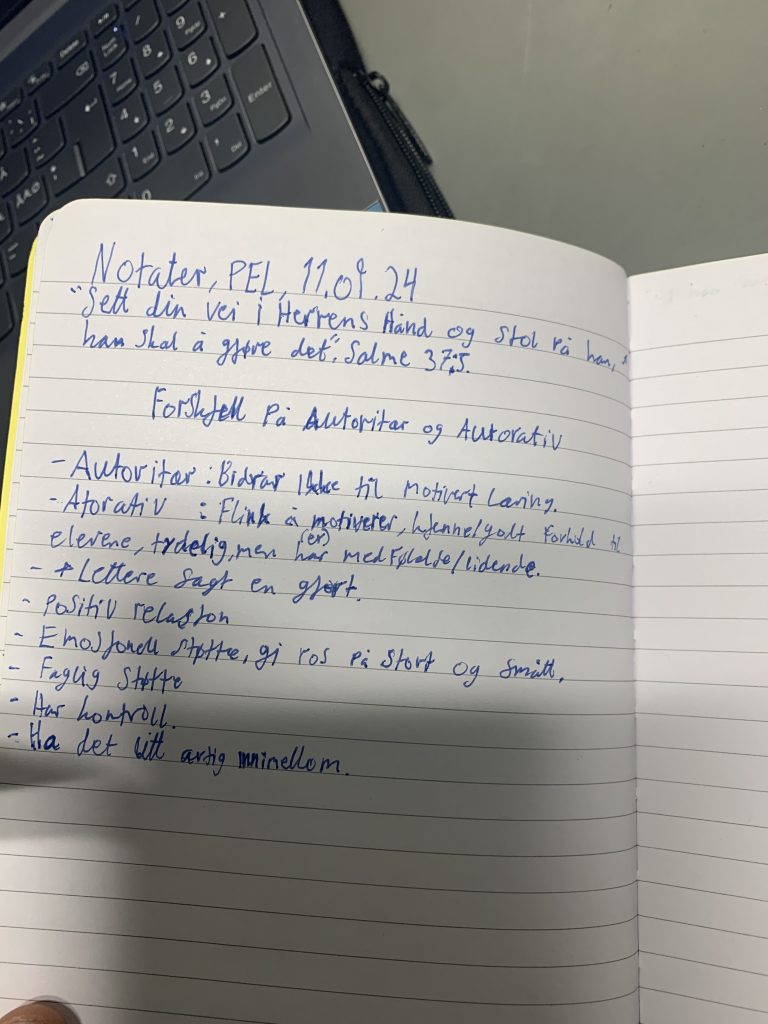 Notater, PEL, 11.09.24
"Sett din vei i Herrens Hånd og stol på han,
han skal å gjøre det". Salme 37:5.
Forskjell på Autoritær og Autorativ
- Autoritær : Bidrar ikke til motivert læring.
- Atorativ : Flink å motiverer, kjenne/godt forhold til
(er)
elevene, tydelig, men har medfølelse/lidende.
- + Lettere sagt en gjort.
- Positiv relasjon
- Emosjonell støtte, gi ros på stort og smått.
- Faglig støtte
- Har kontroll.
- Ha det litt artig innimellom.